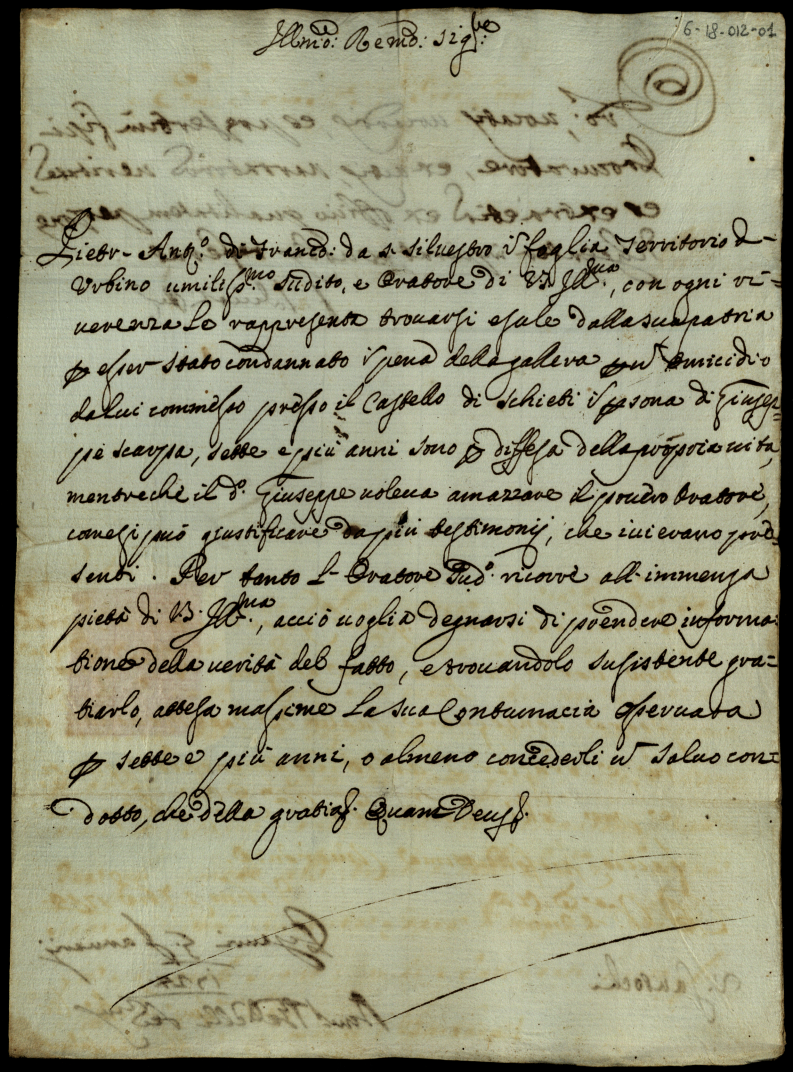 6-18-012-01
Illmo: Remo: Sigre:
Pietr-Anto. di Franco: da S. Silvestro i Foglia Territorio d-
Urbino umilissmo. sudito, e Oratore di V. Illma., con ogni ri=
uerenza Le rappresenta trouarsi esule dalla sua patria
p esser stato condannato i pena della gallera p un omicidio
da lui commesso presso il Castello di Schieti i psona di Giusep=
pe Scarpa, sette e più anni sono p diffesa della propria uita,
mentreche il do. Giuseppe uoleua amazzare il pouero Oratore,
come si può giustificare da più testimonij, che iui erano pre=
senti. Per tanto l- Oratore sudo. ricorre all-immensa
pietà di V. Illma., acciò uoglia degnarsi di prendere informa=
tione della uerità del fatto, e trouandolo susistente gra=
tiarlo, attesa massime La sua Contumacia osseruata
p sette e più anni, o almeno concederli un Saluo con=
dotto, che della gratia. Quam Deus.